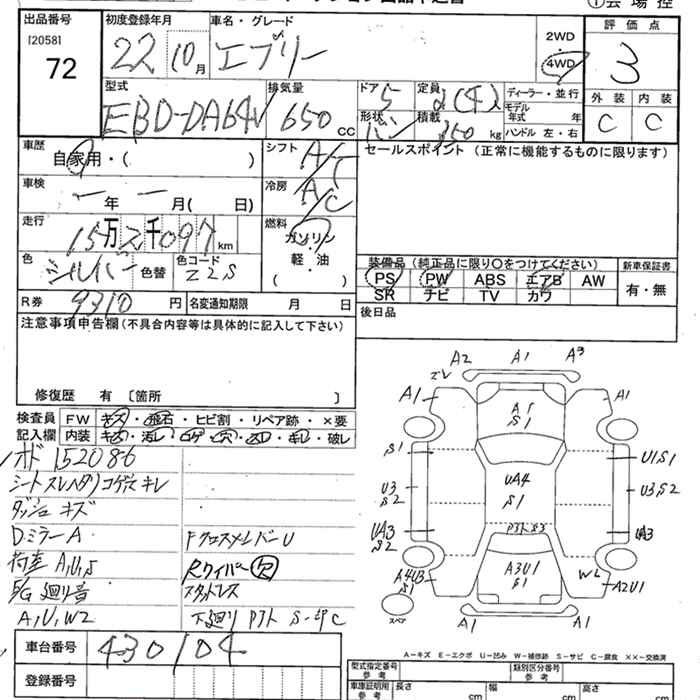 ①会場控
出品番号
[2058]
72
初度登録年月
22 10月
車名・グレード
エブリー
2WD
4WD
評価点
3
外装 内装
C C
型式
EBD-DA64V
排気量
650 CC
ドア
5
定員
2(4)人
形状
バン
積載
350 kg
ディーラー・並行
モデル年式 年
ハンドル 左・右
車歴
自家用・( )
シフト
AT
冷房
A/C
車検
ー年 ー月( 日)
走行
15万2千097km
燃料
ガソリン
・
軽・油
( )
色
シルバー 色替
色コード
Z2S
R券 9310円 名変通期限 月 日
セールスポイント (正常に機能するものに限ります)
装備品 (純正品に限り〇をつけてください)
PS PW ABS エアB AW
SR ナビ TV カワ
新車保証書
有・無
後日品
注意事項申告欄(不具合内容等は具体的に記入して下さい)
修復歴 有 〔箇所 〕
検査員 FW キズ・飛石・ヒビ割・リペア跡・×要
記入欄 内装 キズ・汚レ・コゲ・穴・スレ・キレ・破レ
オド 152086
シートスレヘタリコゲ穴キレ
ダッシュ キズ
DミラーA
荷室 A,U,S
F/G 廻り音
A,U,W2
FクロスメンバーU
Rワイパー欠
スタットレス
下廻り PJト S-印C
A2 A1 A3
ズレ
A1 A1
A1
S1
S1 U1S1
U3 U3S2
S2
UA4
S1
UA3 UA3
S2
PJトS3
A3U1
S1
A4U3
S1
W2 A2U1
スペア
A1 A1
A-キズ E-エクボ U-凹み W-補修跡 S-サビ C-腐食 ××-交換済
車台番号 430104
登録番号
型式指定番号 参考
類別区分番号 参考
車庫証明用 参考
長さ cm 幅 cm 高さ cm